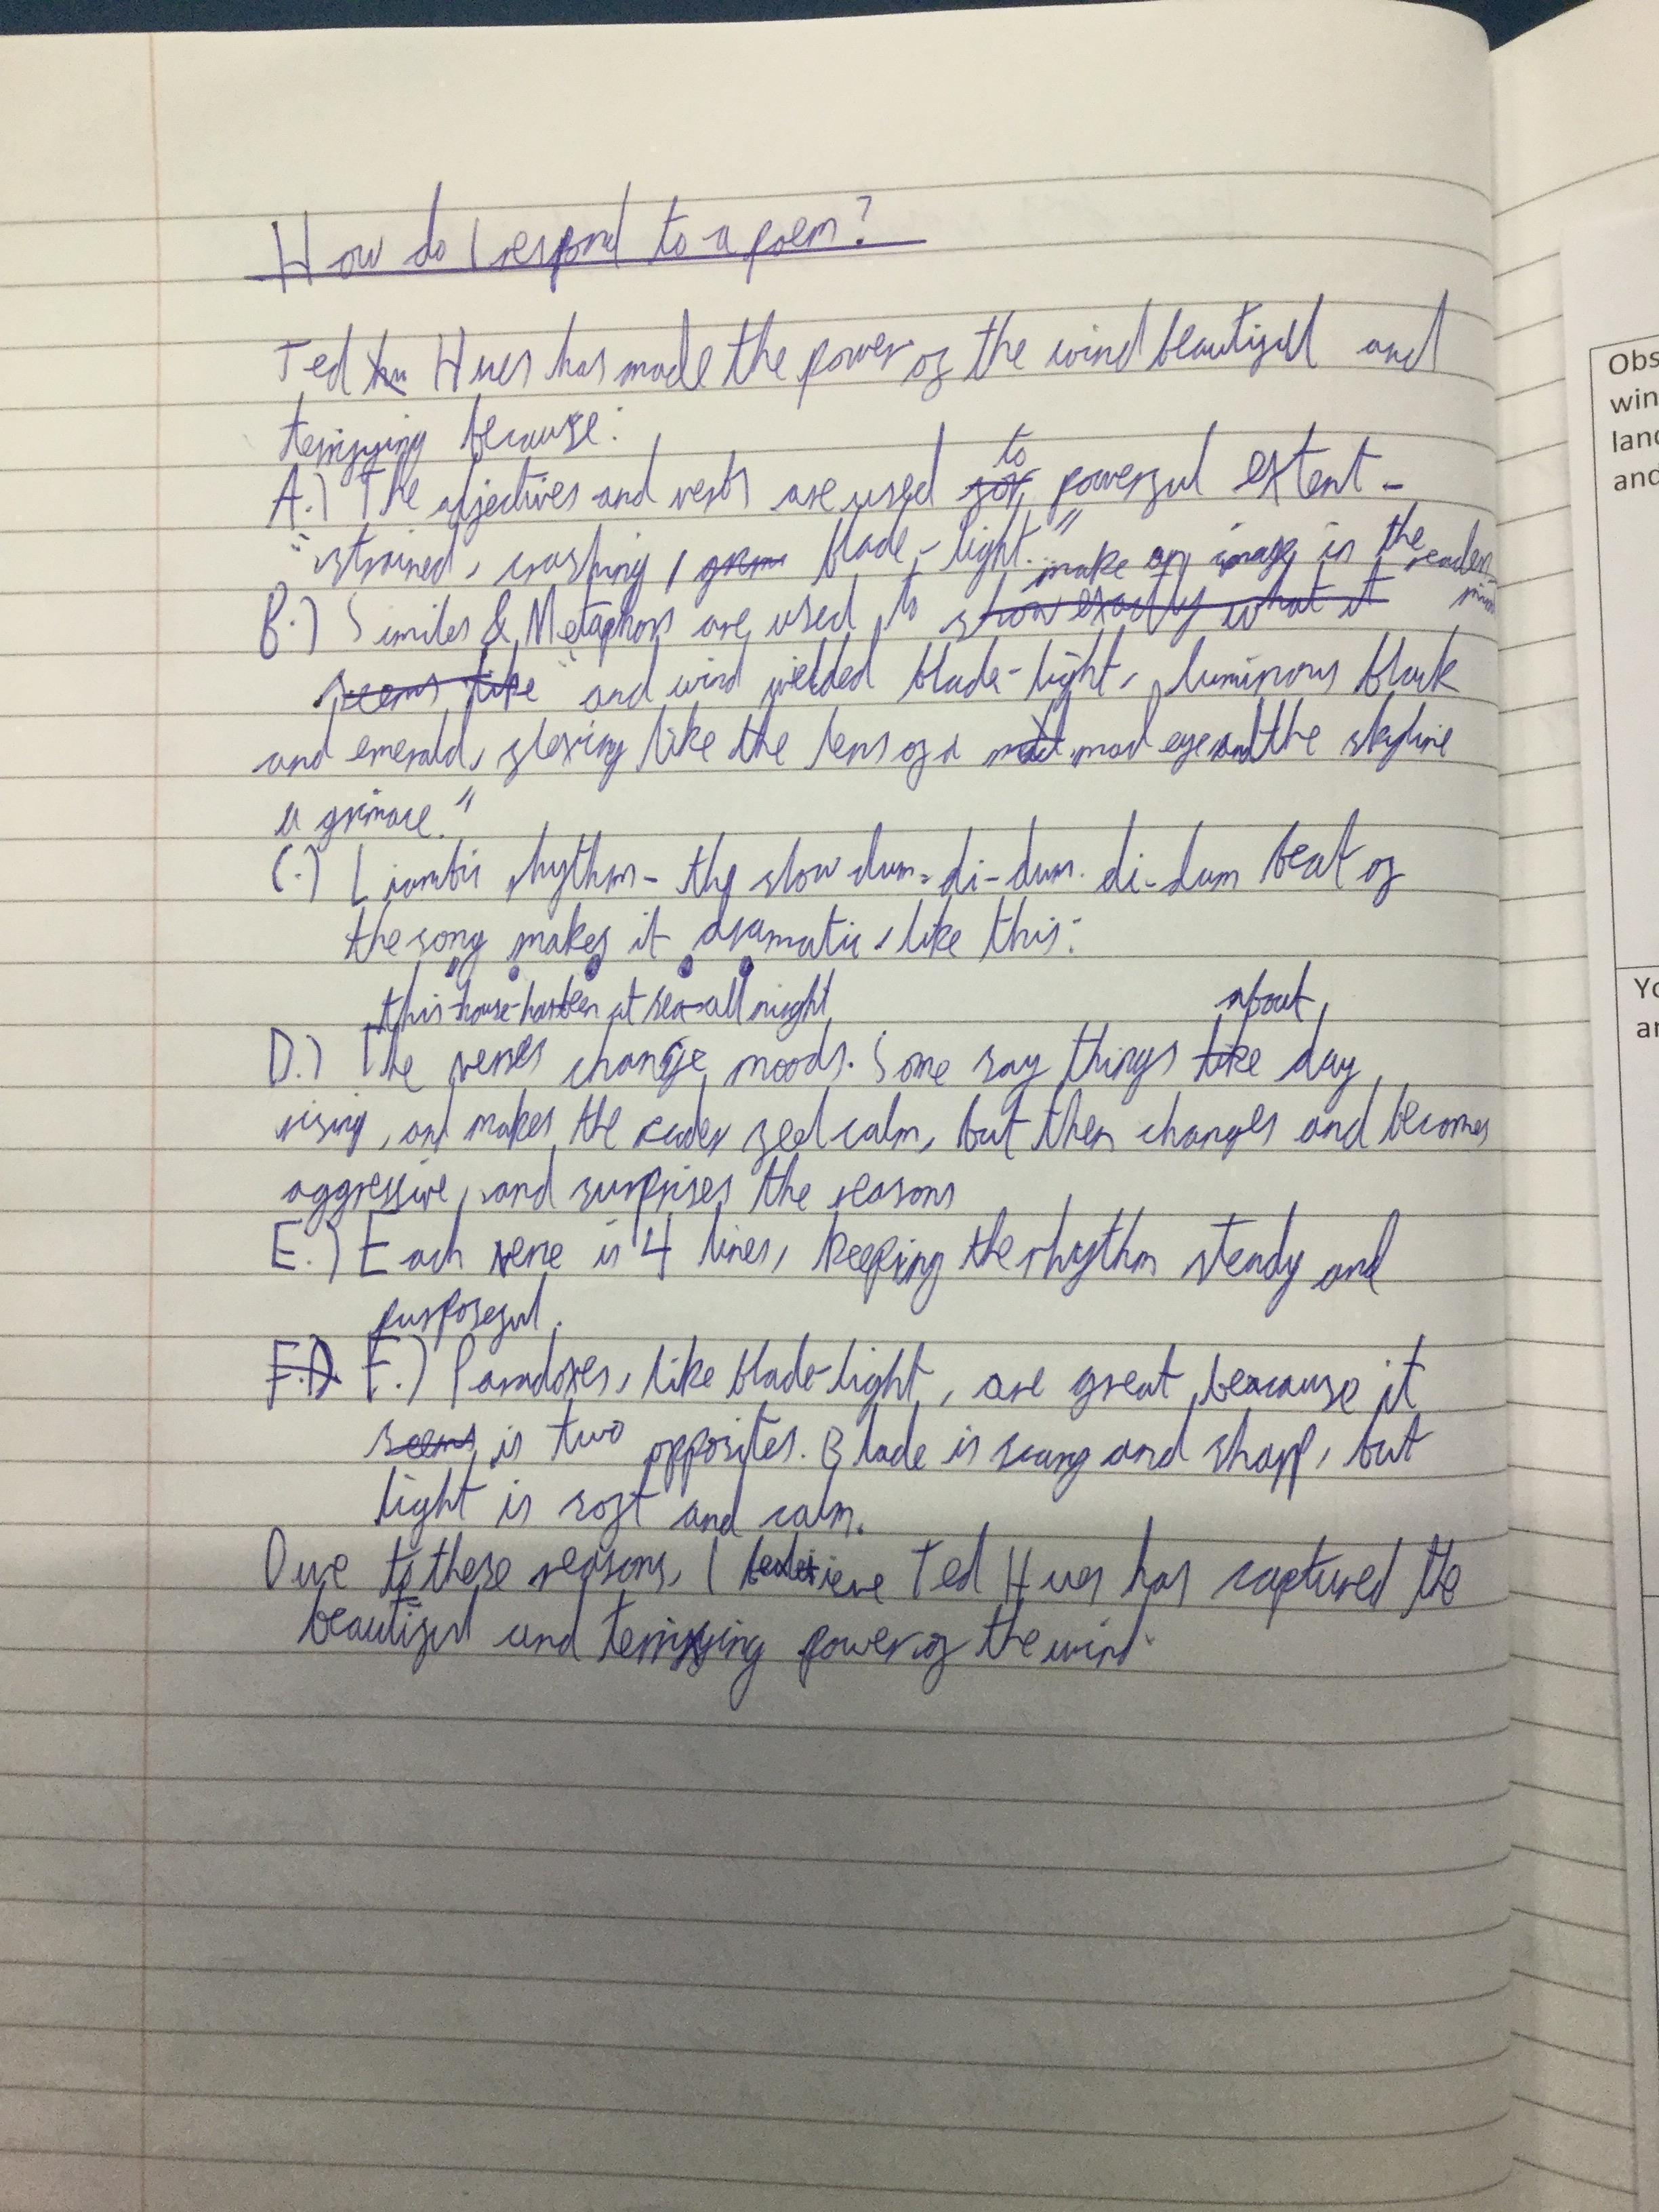 How do I respond to a poem?
Ted Hues has made the power of the wind beautiful and
terrifying because:
A.) The adjectives and verbs are used to powerful extent -
"strained, crashing, blade-light."
make an image in the readers mind
B.) Similes & Metaphors are used to show exactly what it
seems like "and wind wielded blade-light, luminous black
and emerald, flexing like the lens of a mad eye and the skyline
a grimace."
C.) Iambic rhythm - the slow dum-di-dum-di-dum beat of
the song makes it dramatic, like this:
this-house-has been at sea-all night
D.) The verses change moods. Some say things like about day
rising, and makes the reader feel calm, but then changes and becomes
aggressive, and surprises the reasons
E.) Each verse is 4 lines, keeping the rhythm steady and
purposeful.
F.) F.) Paradoxes, like blade-light, are great because it
seems is two opposites. Blade is and sharp, but
light is soft and calm.
Due to these reasons, I believe Ted Hues has captured the
beautiful and terrifying power of the wind.
Obs
win
land
and
Yo
ar